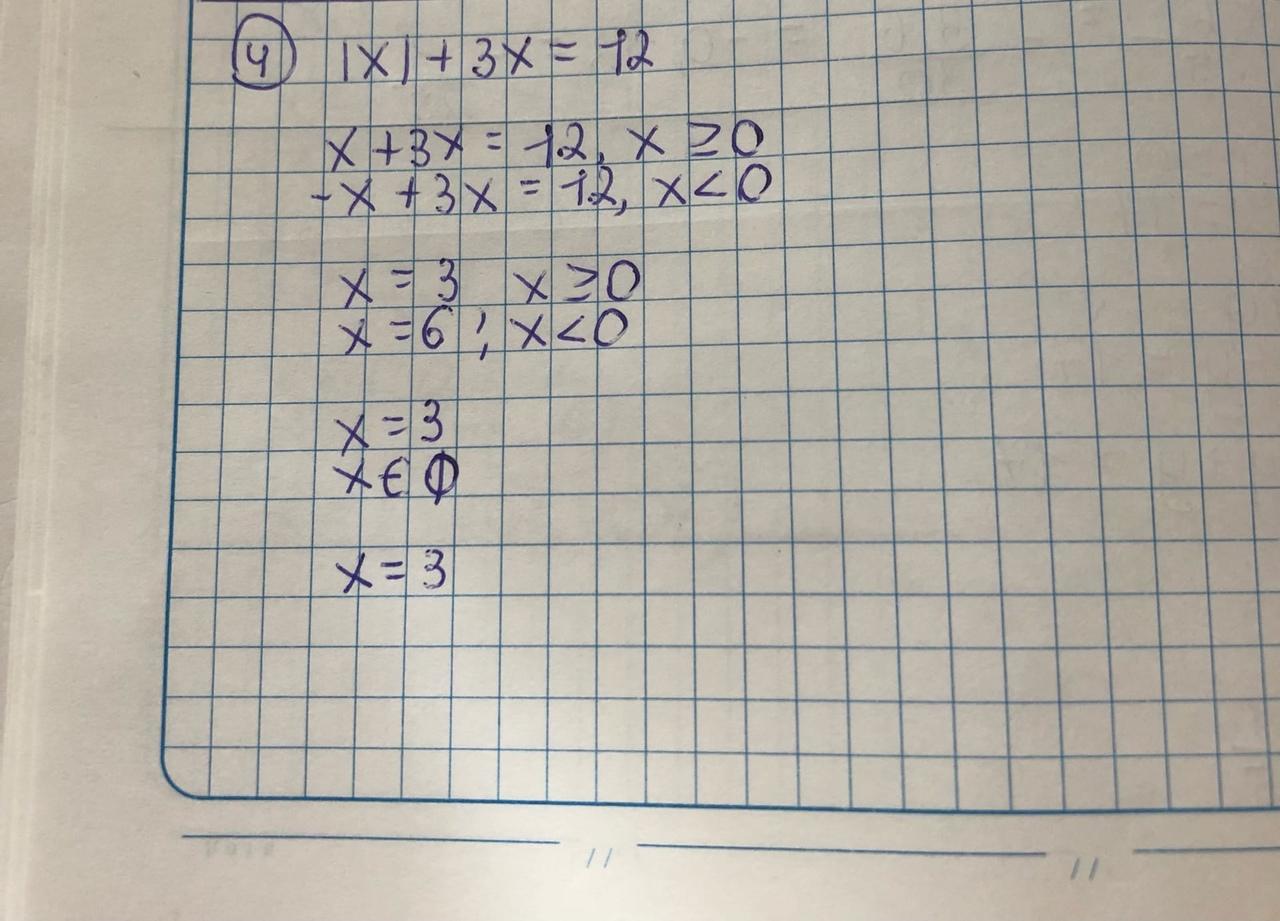 ④ |x| + 3x = 12
x + 3x = 12, x ≥ 0
-x + 3x = 12, x < 0
x = 3 x ≥ 0
x = 6 ; x < 0
x = 3
x ∈ ∅
x = 3